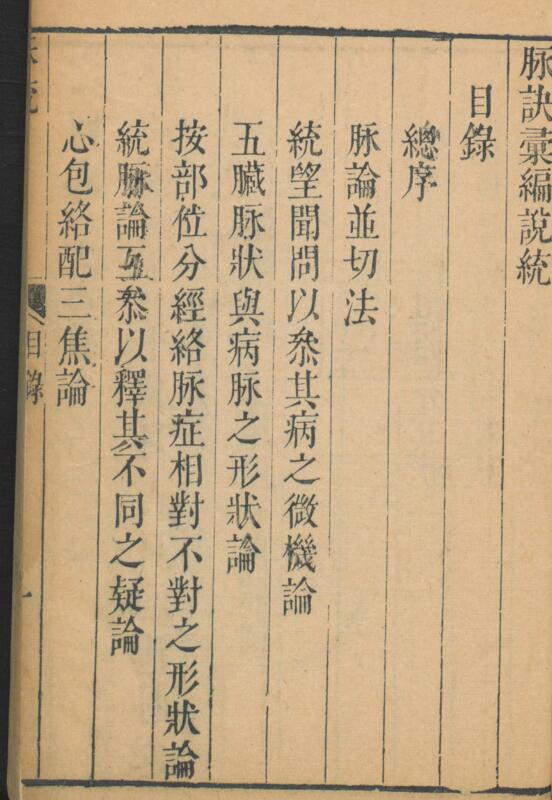 脉訣彙編說統
目錄
總序
脉論並切法
統望聞問以叅其病之微機論
五臟脉狀與病脉之形狀論
按部位分經絡脉症相對不對之形狀論
統脉論互叅以釋其不同之疑論
心包絡配三焦論
目錄
一